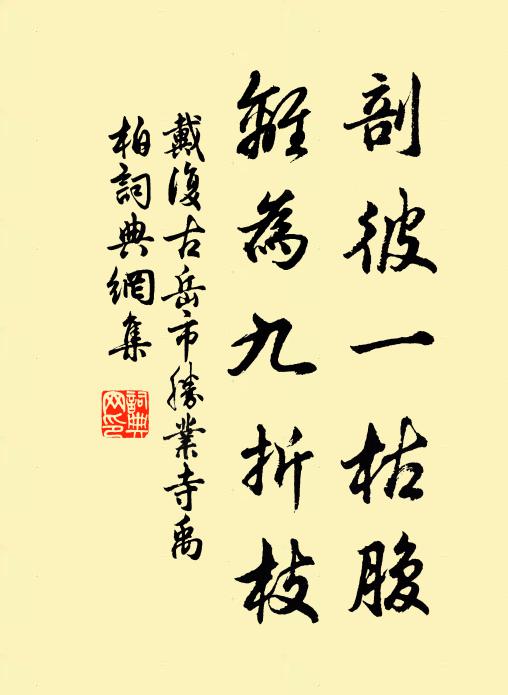 剖彼一枯腹
離為九折枝
戴復古岳市勝業寺禹
柏詞典網集
詞典
网印